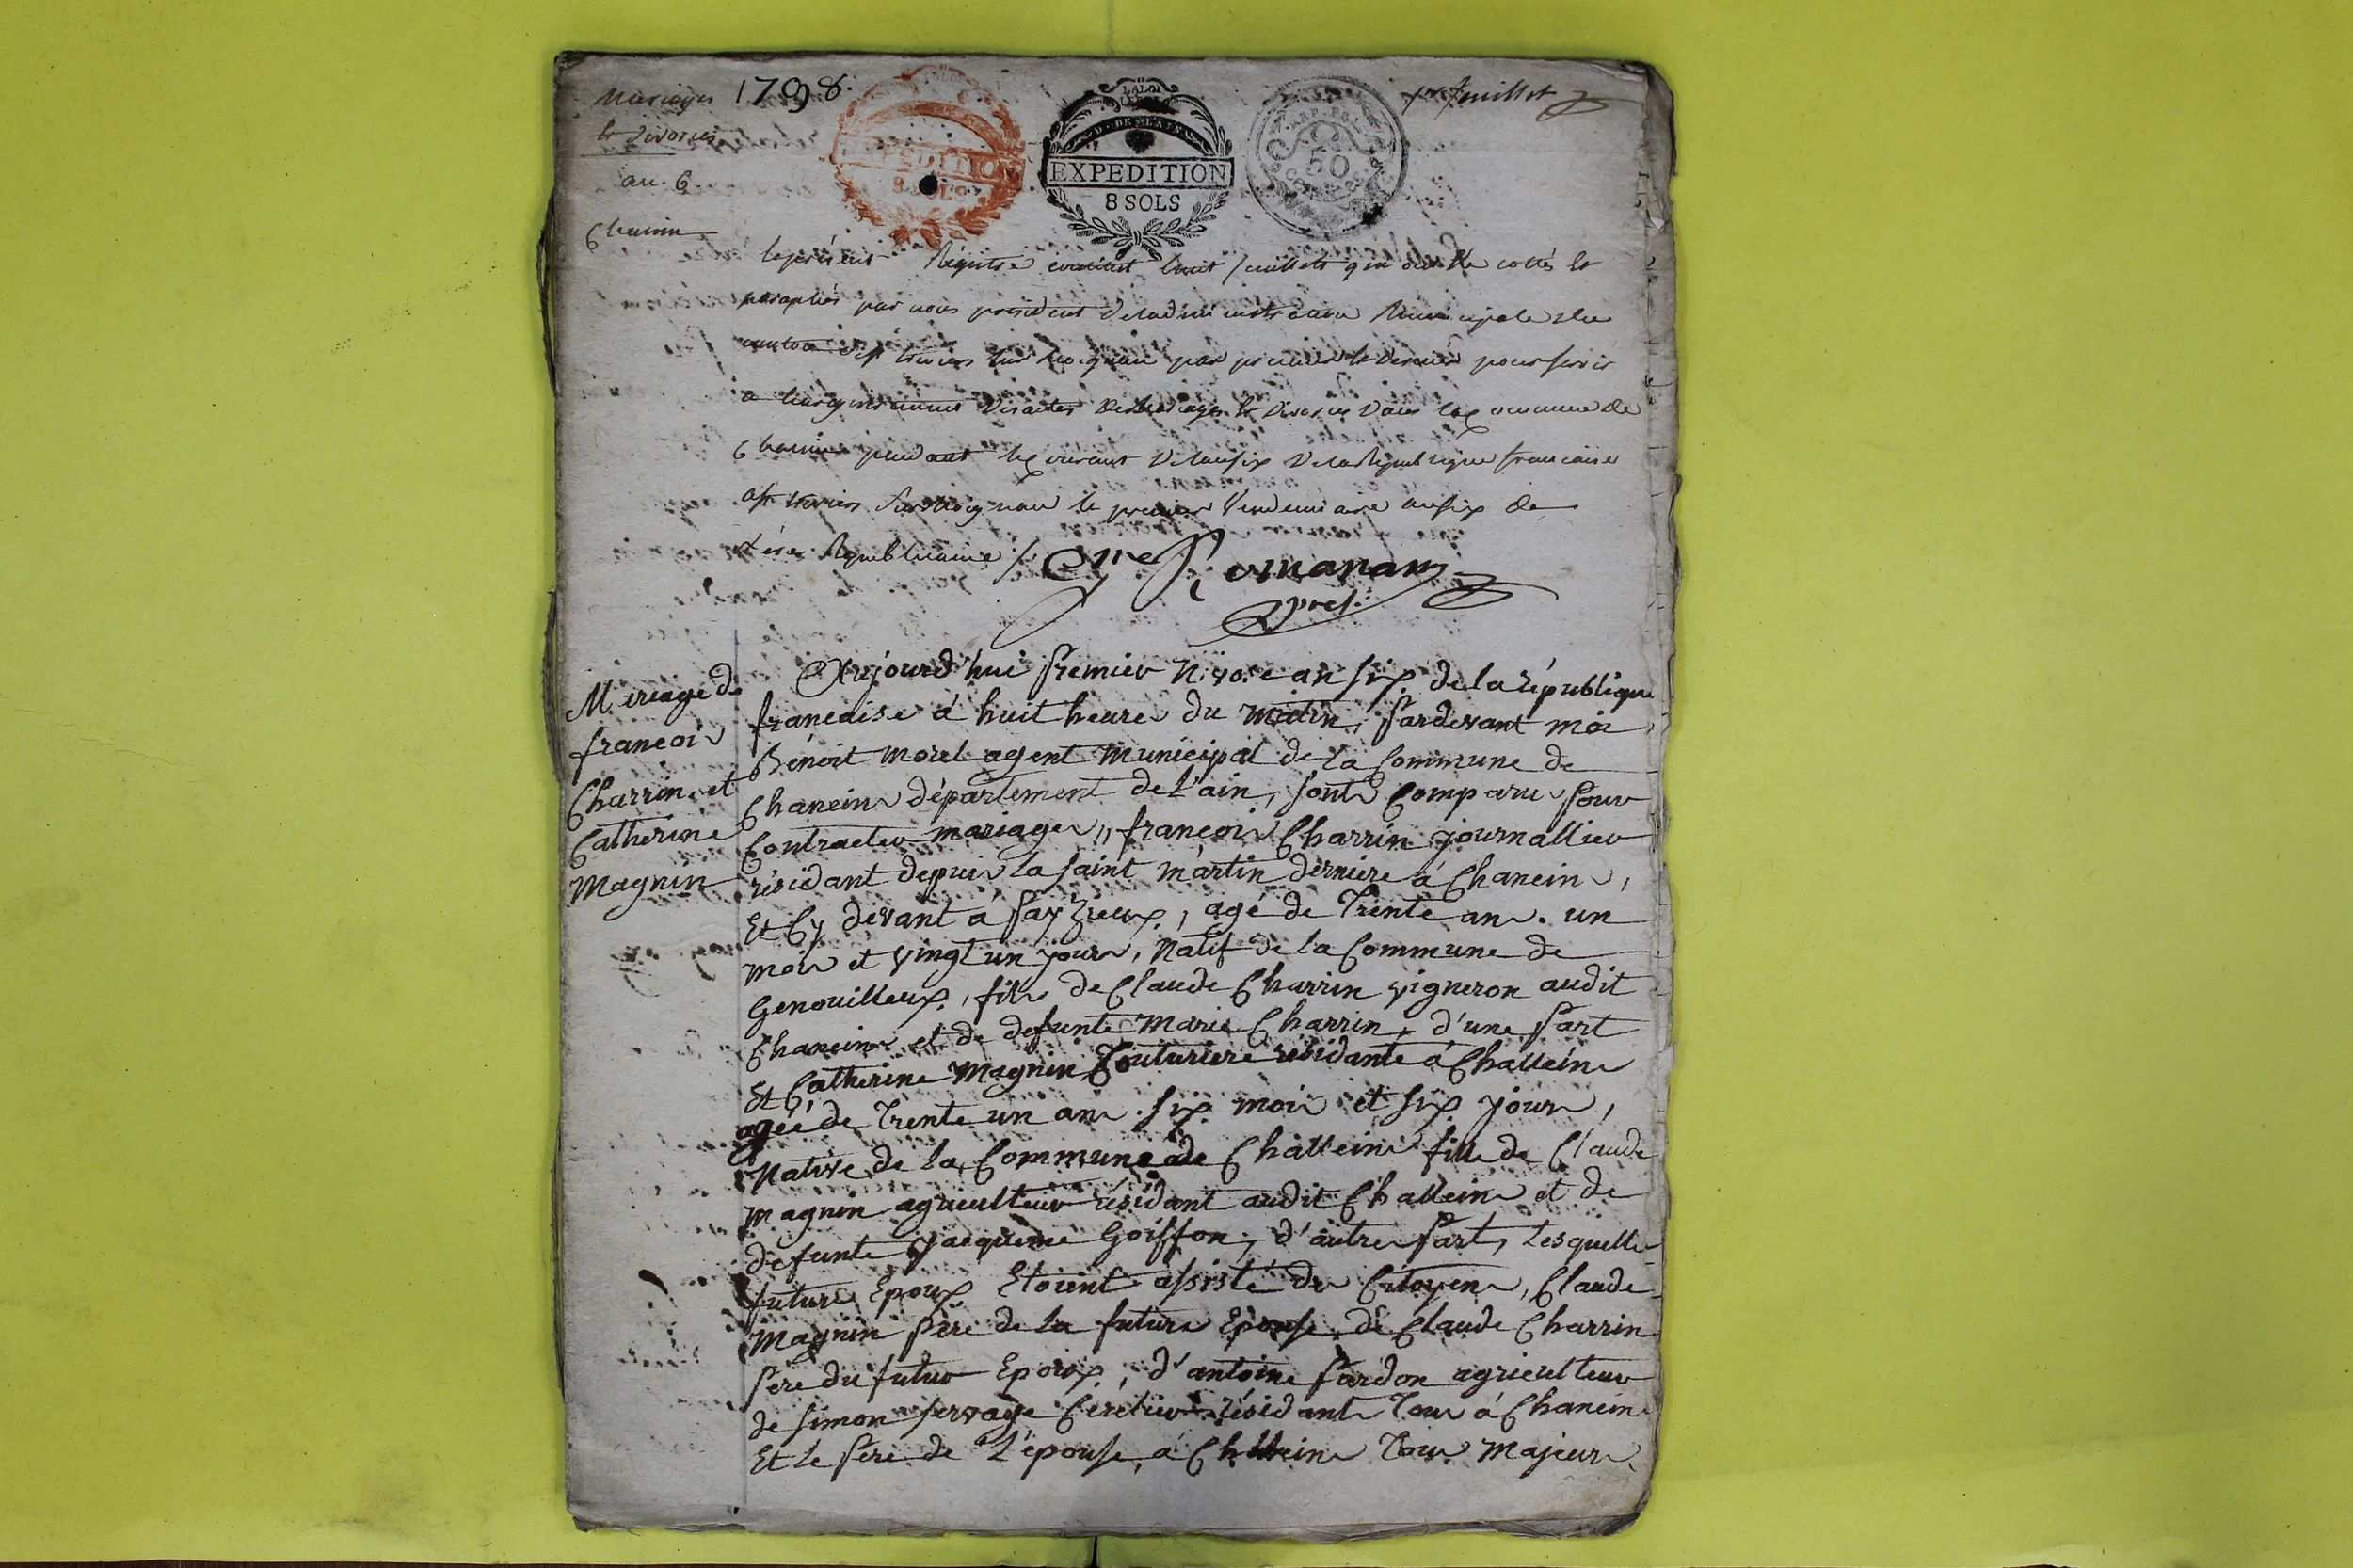 Mariages 1798.
et Divorces
an 6
Chanein
1er feuillet
LA LOI
D. DE L'AIN
EXPEDITION
8 SOLS
EXPEDITION
8 SOLS
REP. FRA.
50
CENT
le présent Régistre contient huit feuillets qui ont été cottés et
paraphés par nous président de l'administration Municipale du
canton de st trivier sur moignans par premier et dernier pour servir
a des actes de Mariages et divorces dans la Commune de
Chanein pendant le courant de l'an six de la République francaise
a st trivier sur moignans le premier Vendemiaire an six de
l'ére Republicaine /.
pres.
Mariage de
francois
Charrin et
Catherine
Magnin
Aujourd'hui premier Nivose an six de la république
francaise á huit heures du matin, pardevant moi
Bénoit morel agent municipal de la Commune de
Chaneins département de l'ain, sont Comparus pour
Contracter mariage, francois Charrin journallier
résidant depuis la saint martin derniere á Chaneins,
Et Cy devant á fayzieux, agé de Trente ans. un
mois et vingt un jours, natif de la Commune de
Genouilleux, fils de Claude Charrin vigneron audit
Chaneins et de defunte Marie Charrin, d'une part
Et Catherine Magnin Couturiere résidante á Challeins
agée de Trente un ans. six mois et six jours,
Native de la Commune de Challeins fille de Claude
Magnin agriculteur résidant audit Challeins et de
defunte Jacqueme Goiffon, d'autre part, Lesquelle
future Epoux Etoient assisté des Citoyens, Claude
Magnin père de la future Epouse, de Claude Charrin
pere du futur Epoux, d'antoine fardon agriculteur
de simon servage résidants Tous á Chaneins
Et Le pere de L'epouse, á Challeins Tous Majeurs.